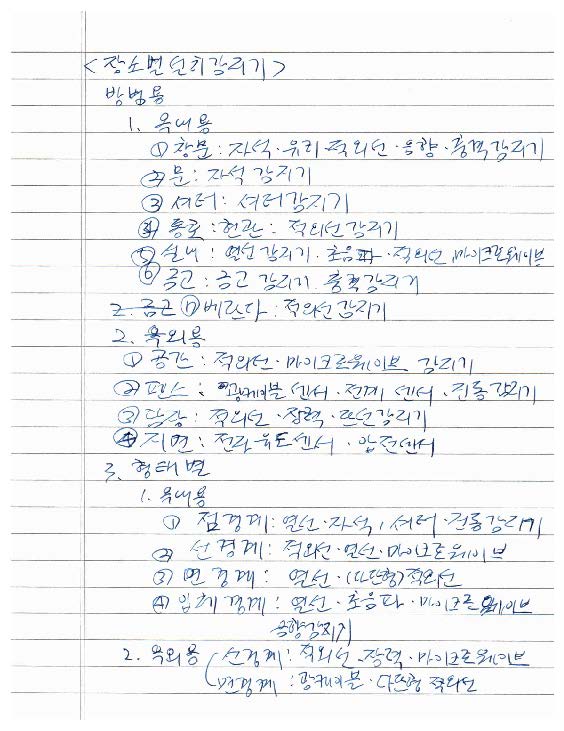 <장소별 설치감지기>
방범용
1. 옥내용
① 창문: 자석·유리·적외선·음향·충격감지기
② 문: 자석감지기
③ 셔터: 셔터감지기
④ 통로: 현관: 적외선감지기
⑤ 실내: 열선감지기·초음파·적외선·마이크로웨이브
⑥ 금고: 금고감지기·충격감지기
2. 금고 ⑦ 베란다: 적외선감지기
2. 옥외용
① 공간: 적외선·마이크로웨이브 감지기
② 펜스: 광케이블센서·전계센서·진동감지기
③ 담장: 적외선·장력·단선감지기
④ 지면: 전파유도센서·압전센서
3. 형태별
1. 옥내용
① 점경계: 열선·자석, 셔터·진동감지기
② 선경계: 적외선·열선·마이크로웨이브
③ 면경계: 열선·(다단형)적외선
④ 입체경계: 열선·초음파·마이크로웨이브
음향감지기
2. 옥외용 ( 선경계: 적외선·장력·마이크로웨이브
면경계: 광케이블·다단형 적외선